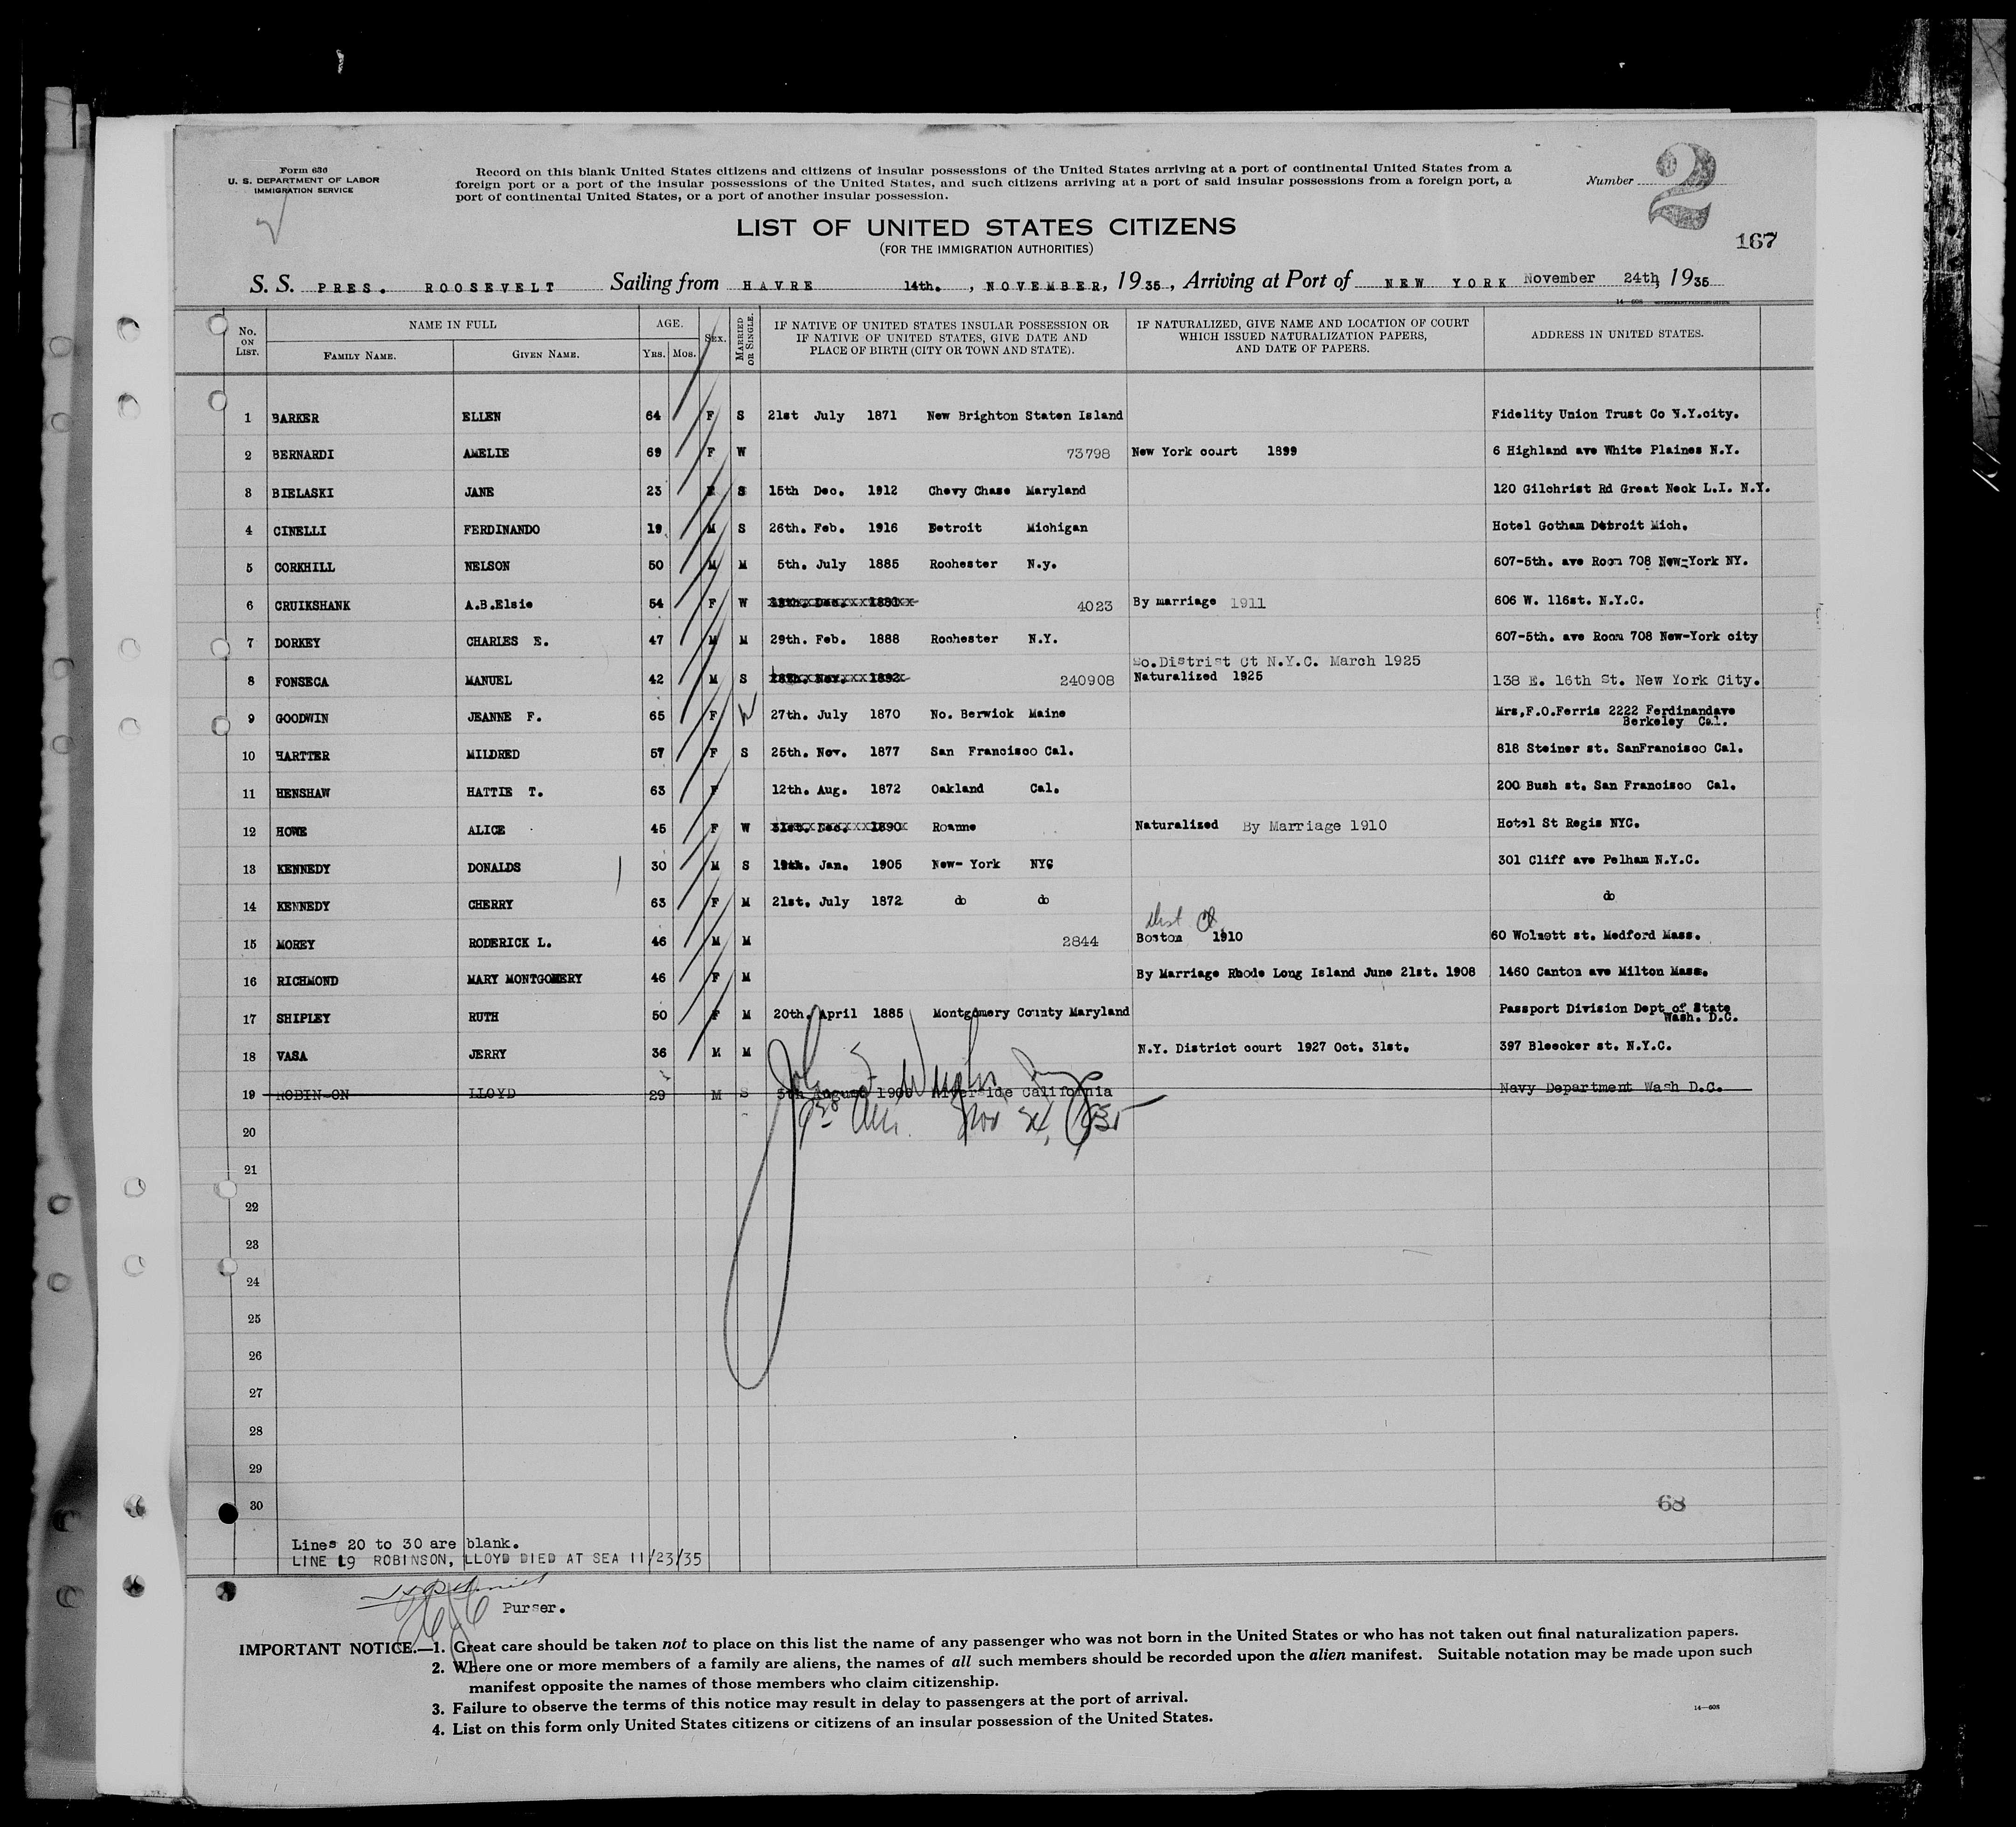 Form 630
U. S. DEPARTMENT OF LABOR
IMMIGRATION SERVICE
Record on this blank United States citizens and citizens of insular possessions of the United States arriving at a port of continental United States from a
foreign port or a port of the insular possessions of the United States, and such citizens arriving at a port of said insular possessions from a foreign port, a
port of continental United States, or a port of another insular possession.
Number 2
167
LIST OF UNITED STATES CITIZENS
(FOR THE IMMIGRATION AUTHORITIES)
S. S. PRES. ROOSEVELT Sailing from HAVRE 14th. , NOVEMBER, 1935, Arriving at Port of NEW YORK November 24th, 1935
No. ON LIST. NAME IN FULL FAMILY NAME. GIVEN NAME. AGE. YRS. MOS. SEX. MARRIED OR SINGLE. IF NATIVE OF UNITED STATES INSULAR POSSESSION OR IF NATIVE OF UNITED STATES, GIVE DATE AND PLACE OF BIRTH (CITY OR TOWN AND STATE). IF NATURALIZED, GIVE NAME AND LOCATION OF COURT WHICH ISSUED NATURALIZATION PAPERS, AND DATE OF PAPERS. ADDRESS IN UNITED STATES.
1 BARKER ELLEN 64 F S 21st July 1871 New Brighton Staten Island Fidelity Union Trust Co N.Y.city.
2 BERNARDI AMELIE 69 F W 73798 New York court 1899 6 Highland ave White Plaines N.Y.
3 BIELASKI JANE 23 F S 15th Dec. 1912 Chevy Chase Maryland 120 Gilchrist Rd Great Neck L.I. N.Y.
4 CINELLI FERDINANDO 19 M S 26th. Feb. 1916 Detroit Michigan Hotel Gotham Detroit Mich.
5 CORKHILL NELSON 50 M M 5th. July 1885 Rochester N.y. 607-5th. ave Room 708 New-York NY.
6 CRUIKSHANK A.B.Elsie 54 F W 4023 By marriage 1911 606 W. 116st. N.Y.C.
7 DORKEY CHARLES E. 47 M M 29th. Feb. 1888 Rochester N.Y. 607-5th. ave Room 708 New-York city
So.District Ct N.Y.C. March 1925
8 FONSECA MANUEL 42 M S 240908 Naturalized 1925 138 E. 16th St. New York City.
9 GOODWIN JEANNE F. 65 F W 27th. July 1870 No. Berwick Maine Mrs,F.O.Ferris 2222 Ferdinandave
Berkeley Cal.
10 HARTTER MILDRED 57 F S 25th. Nov. 1877 San Francisco Cal. 818 Steiner st. SanFrancisco Cal.
11 HENSHAW HATTIE T. 63 F 12th. Aug. 1872 Oakland Cal. 200 Bush st. San Francisco Cal.
12 HOWE ALICE 45 F W 31st. Dec. 1890 Roanne Naturalized By Marriage 1910 Hotel St Regis NYC.
13 KENNEDY DONALDS 30 M S 19th. Jan. 1905 New- York NYC 301 Cliff ave Pelham N.Y.C.
14 KENNEDY CHERRY 63 F M 21st. July 1872 do do do
Dist Ct
15 MOREY RODERICK L. 46 M M 2844 Boston 1910 60 Wolnott st. Medford Mass.
16 RICHMOND MARY MONTGOMERY 46 F M By Marriage Rhode Long Island June 21st. 1908 1460 Canton ave Milton Mass.
17 SHIPLEY RUTH 50 F M 20th. April 1885 Montgomery County Maryland Passport Division Dept of State
Wash. D.C.
18 VASA JERRY 36 M M N.Y. District court 1927 Oct. 31st. 397 Bleecker st. N.Y.C.
19 ROBINSON LLOYD 29 M S 5th August 1906 Riverside California Navy Department Wash D.C.
Nov 24, 1935
20
21
22
23
24
25
26
27
28
29
30
68
Lines 20 to 30 are blank.
LINE 19 ROBINSON, LLOYD DIED AT SEA 11/23/35
Purser.
IMPORTANT NOTICE.—1. Great care should be taken not to place on this list the name of any passenger who was not born in the United States or who has not taken out final naturalization papers.
2. Where one or more members of a family are aliens, the names of all such members should be recorded upon the alien manifest. Suitable notation may be made upon such
manifest opposite the names of those members who claim citizenship.
3. Failure to observe the terms of this notice may result in delay to passengers at the port of arrival.
4. List on this form only United States citizens or citizens of an insular possession of the United States.
14—608